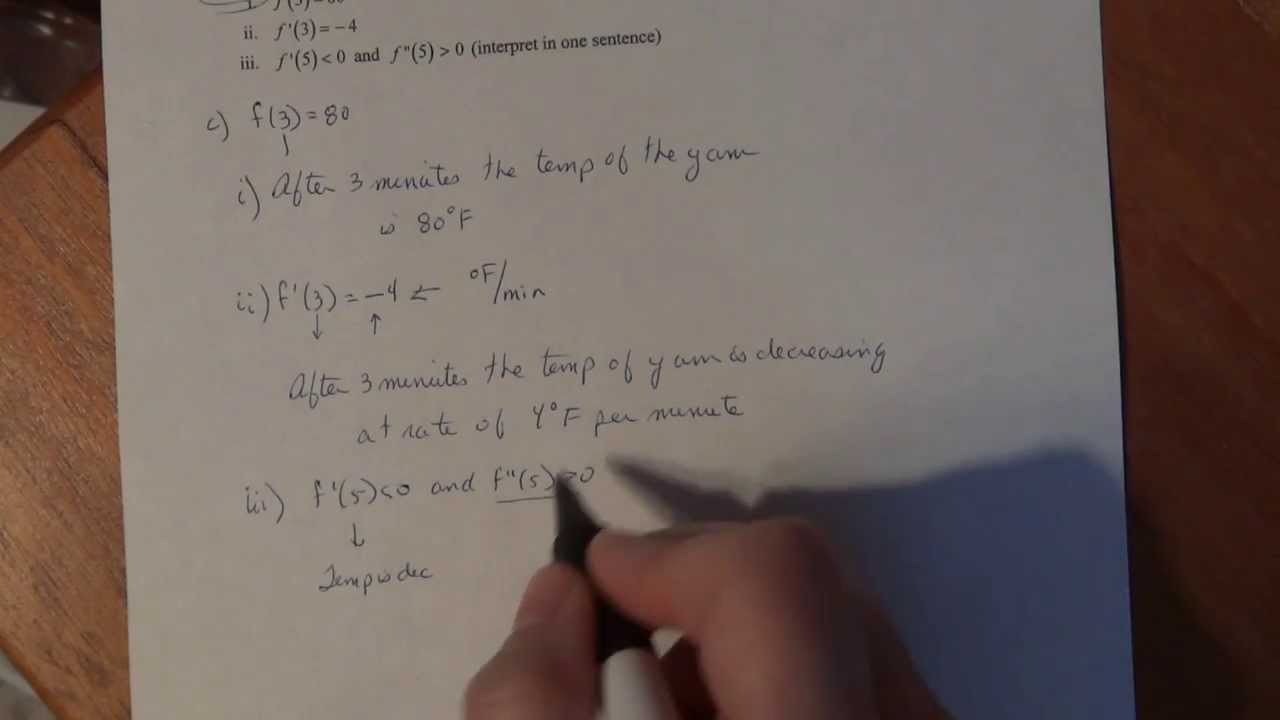 ii. f'(3) = -4
iii. f'(5) < 0 and f"(5) > 0 (interpret in one sentence)
c) f(3) = 80
i) After 3 minutes the temp of the yam
is 80°F
ii) f'(3) = -4 ← °F/min
After 3 minutes the temp of yam is decreasing
at rate of 4°F per minute
iii) f'(5)<0 and f"(5) >0
Temp is dec